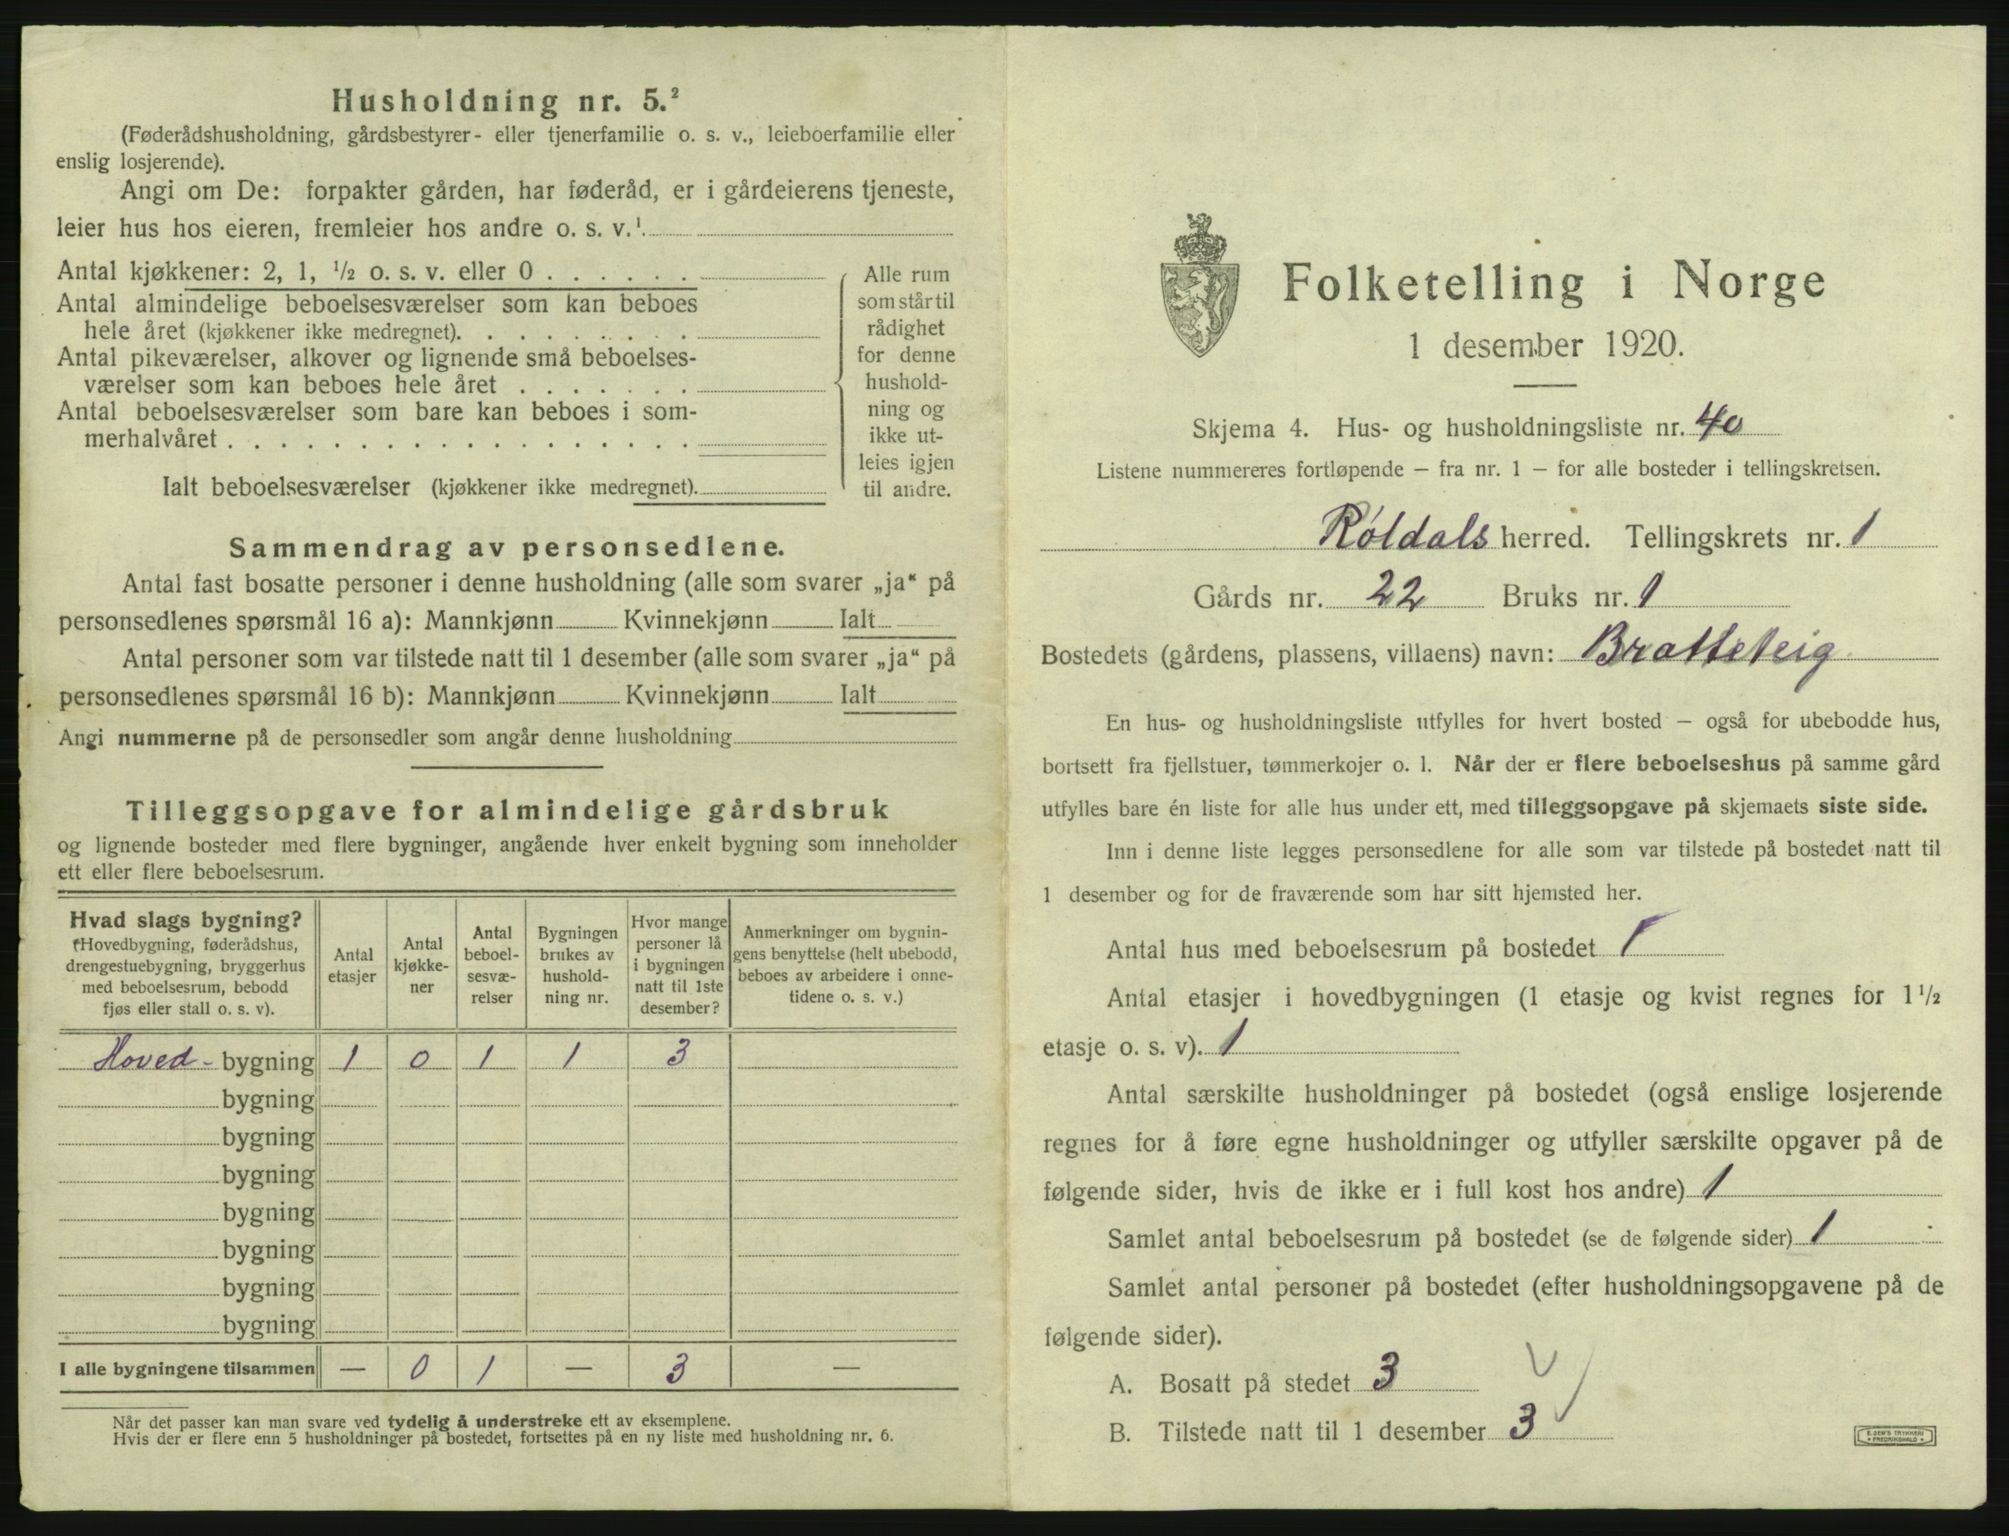 Husholdning nr. 5.²
(Føderådshusholdning, gårdsbestyrer- eller tjenerfamilie o. s. v., leieboerfamilie eller
enslig losjerende).
Angi om De: forpakter gården, har føderåd, er i gårdeierens tjeneste,
leier hus hos eieren, fremleier hos andre o. s. v.¹
Antal kjøkkener: 2, 1, ½ o. s. v. eller 0
Antal almindelige beboelsesværelser som kan beboes
hele året (kjøkkener ikke medregnet).
Antal pikeværelser, alkover og lignende små beboelses-
værelser som kan beboes hele året
Antal beboelsesværelser som bare kan beboes i som-
merhalvåret
Ialt beboelsesværelser (kjøkkener ikke medregnet).
Alle rum
som står til
rådighet
for denne
hushold-
ning og
ikke ut-
leies igjen
til andre.
Sammendrag av personsedlene.
Antal fast bosatte personer i denne husholdning (alle som svarer „ja“ på
personsedlenes spørsmål 16 a): Mannkjønn Kvinnekjønn Ialt
Antal personer som var tilstede natt til 1 desember (alle som svarer „ja“ på
personsedlenes spørsmål 16 b): Mannkjønn Kvinnekjønn Ialt
Angi nummerne på de personsedler som angår denne husholdning
Tilleggsopgave for almindelige gårdsbruk
og lignende bosteder med flere bygninger, angående hver enkelt bygning som inneholder
ett eller flere beboelsesrum.
Hvad slags bygning?
(Hovedbygning, føderådshus,
drengestuebygning, bryggerhus
med beboelsesrum, bebodd
fjøs eller stall o. s. v).
Antal
etasjer
Antal
kjøkke-
ner
Antal
beboel-
sesvæ-
relser
Bygningen
brukes av
hushold-
ning nr.
Hvor mange
personer lå
i bygningen
natt til 1ste
desember?
Anmerkninger om bygnin-
gens benyttelse (helt ubebodd,
beboes av arbeidere i onne-
tidene o. s. v.)
Hoved- bygning 1 0 1 1 3
bygning
bygning
bygning
bygning
bygning
bygning
bygning
I alle bygningene tilsammen — 0 1 — 3 —
Når det passer kan man svare ved tydelig å understreke ett av eksemplene.
Hvis der er flere enn 5 husholdninger på bostedet, fortsettes på en ny liste med husholdning nr. 6.
Folketelling i Norge
1 desember 1920.
Skjema 4. Hus- og husholdningsliste nr. 40
Listene nummereres fortløpende — fra nr. 1 — for alle bosteder i tellingskretsen.
Røldals herred. Tellingskrets nr. 1
Gårds nr. 22 Bruks nr. 1
Bostedets (gårdens, plassens, villaens) navn: Bratteteig
En hus- og husholdningsliste utfylles for hvert bosted — også for ubebodde hus,
bortsett fra fjellstuer, tømmerkojer o. l. Når der er flere beboelseshus på samme gård
utfylles bare én liste for alle hus under ett, med tilleggsopgave på skjemaets siste side.
Inn i denne liste legges personsedlene for alle som var tilstede på bostedet natt til
1 desember og for de fraværende som har sitt hjemsted her.
Antal hus med beboelsesrum på bostedet 1
Antal etasjer i hovedbygningen (1 etasje og kvist regnes for 1½
etasje o. s. v). 1
Antal særskilte husholdninger på bostedet (også enslige losjerende
regnes for å føre egne husholdninger og utfyller særskilte opgaver på de
følgende sider, hvis de ikke er i full kost hos andre) 1
Samlet antal beboelsesrum på bostedet (se de følgende sider) 1
Samlet antal personer på bostedet (efter husholdningsopgavene på de
følgende sider).
A. Bosatt på stedet 3
B. Tilstede natt til 1 desember 3
E. SEM'S TRYKKERI
FREDRIKSHALD